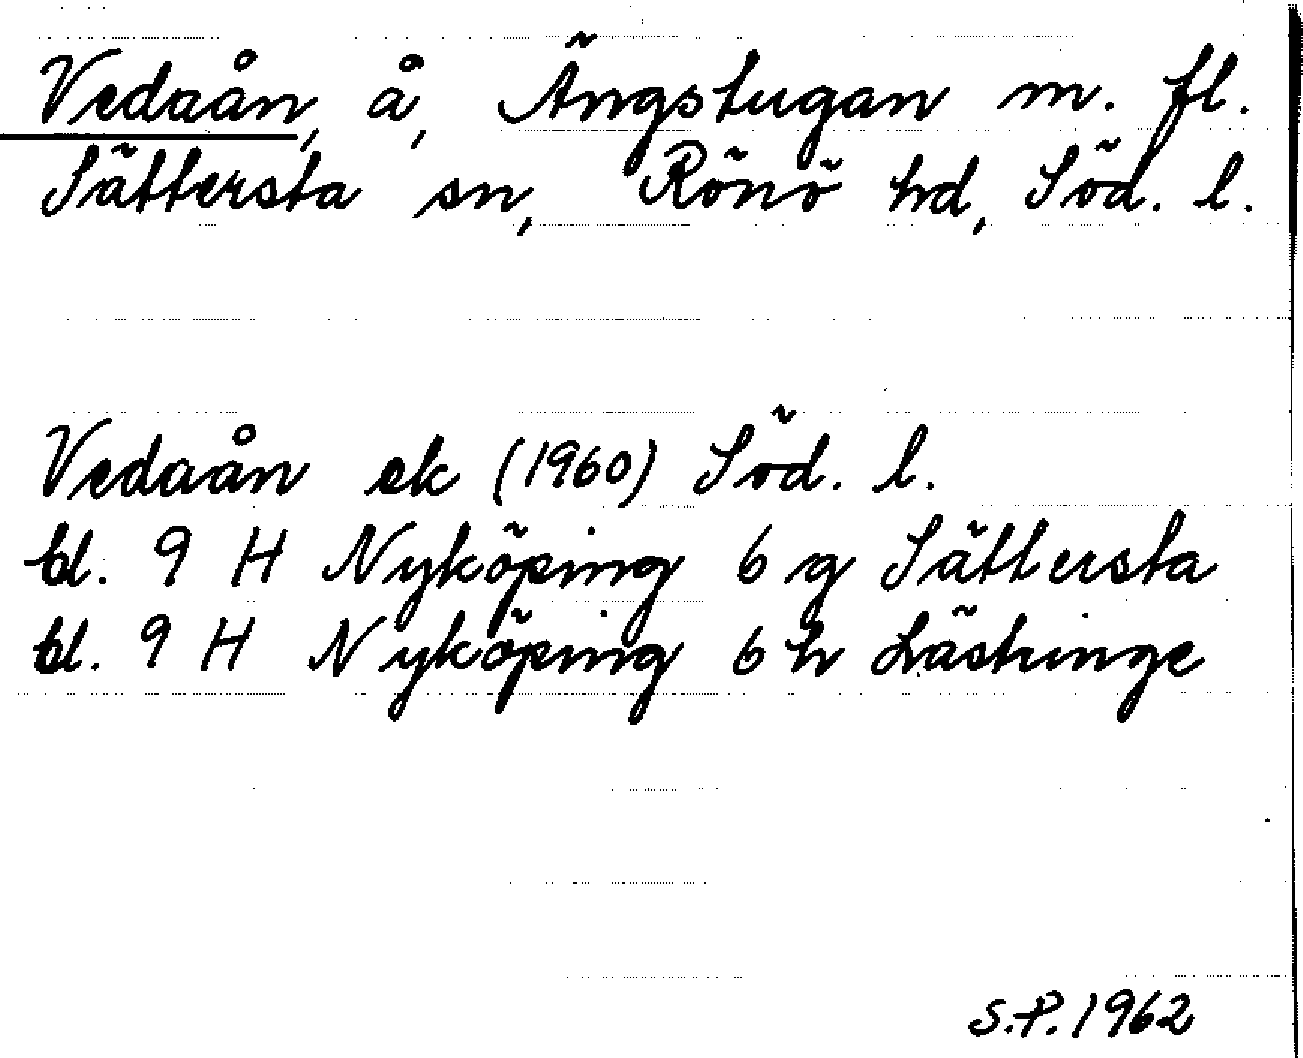 Vedaån, å, Ängstugan m. fl.
Sättersta sn, Rönö hd, Söd. l.
Vedaån ek (1960) Söd. l.
bl. 9 H Nyköping 6 g Sättersta
bl. 9 H Nyköping 6 h Lästringe
S.P. 1962